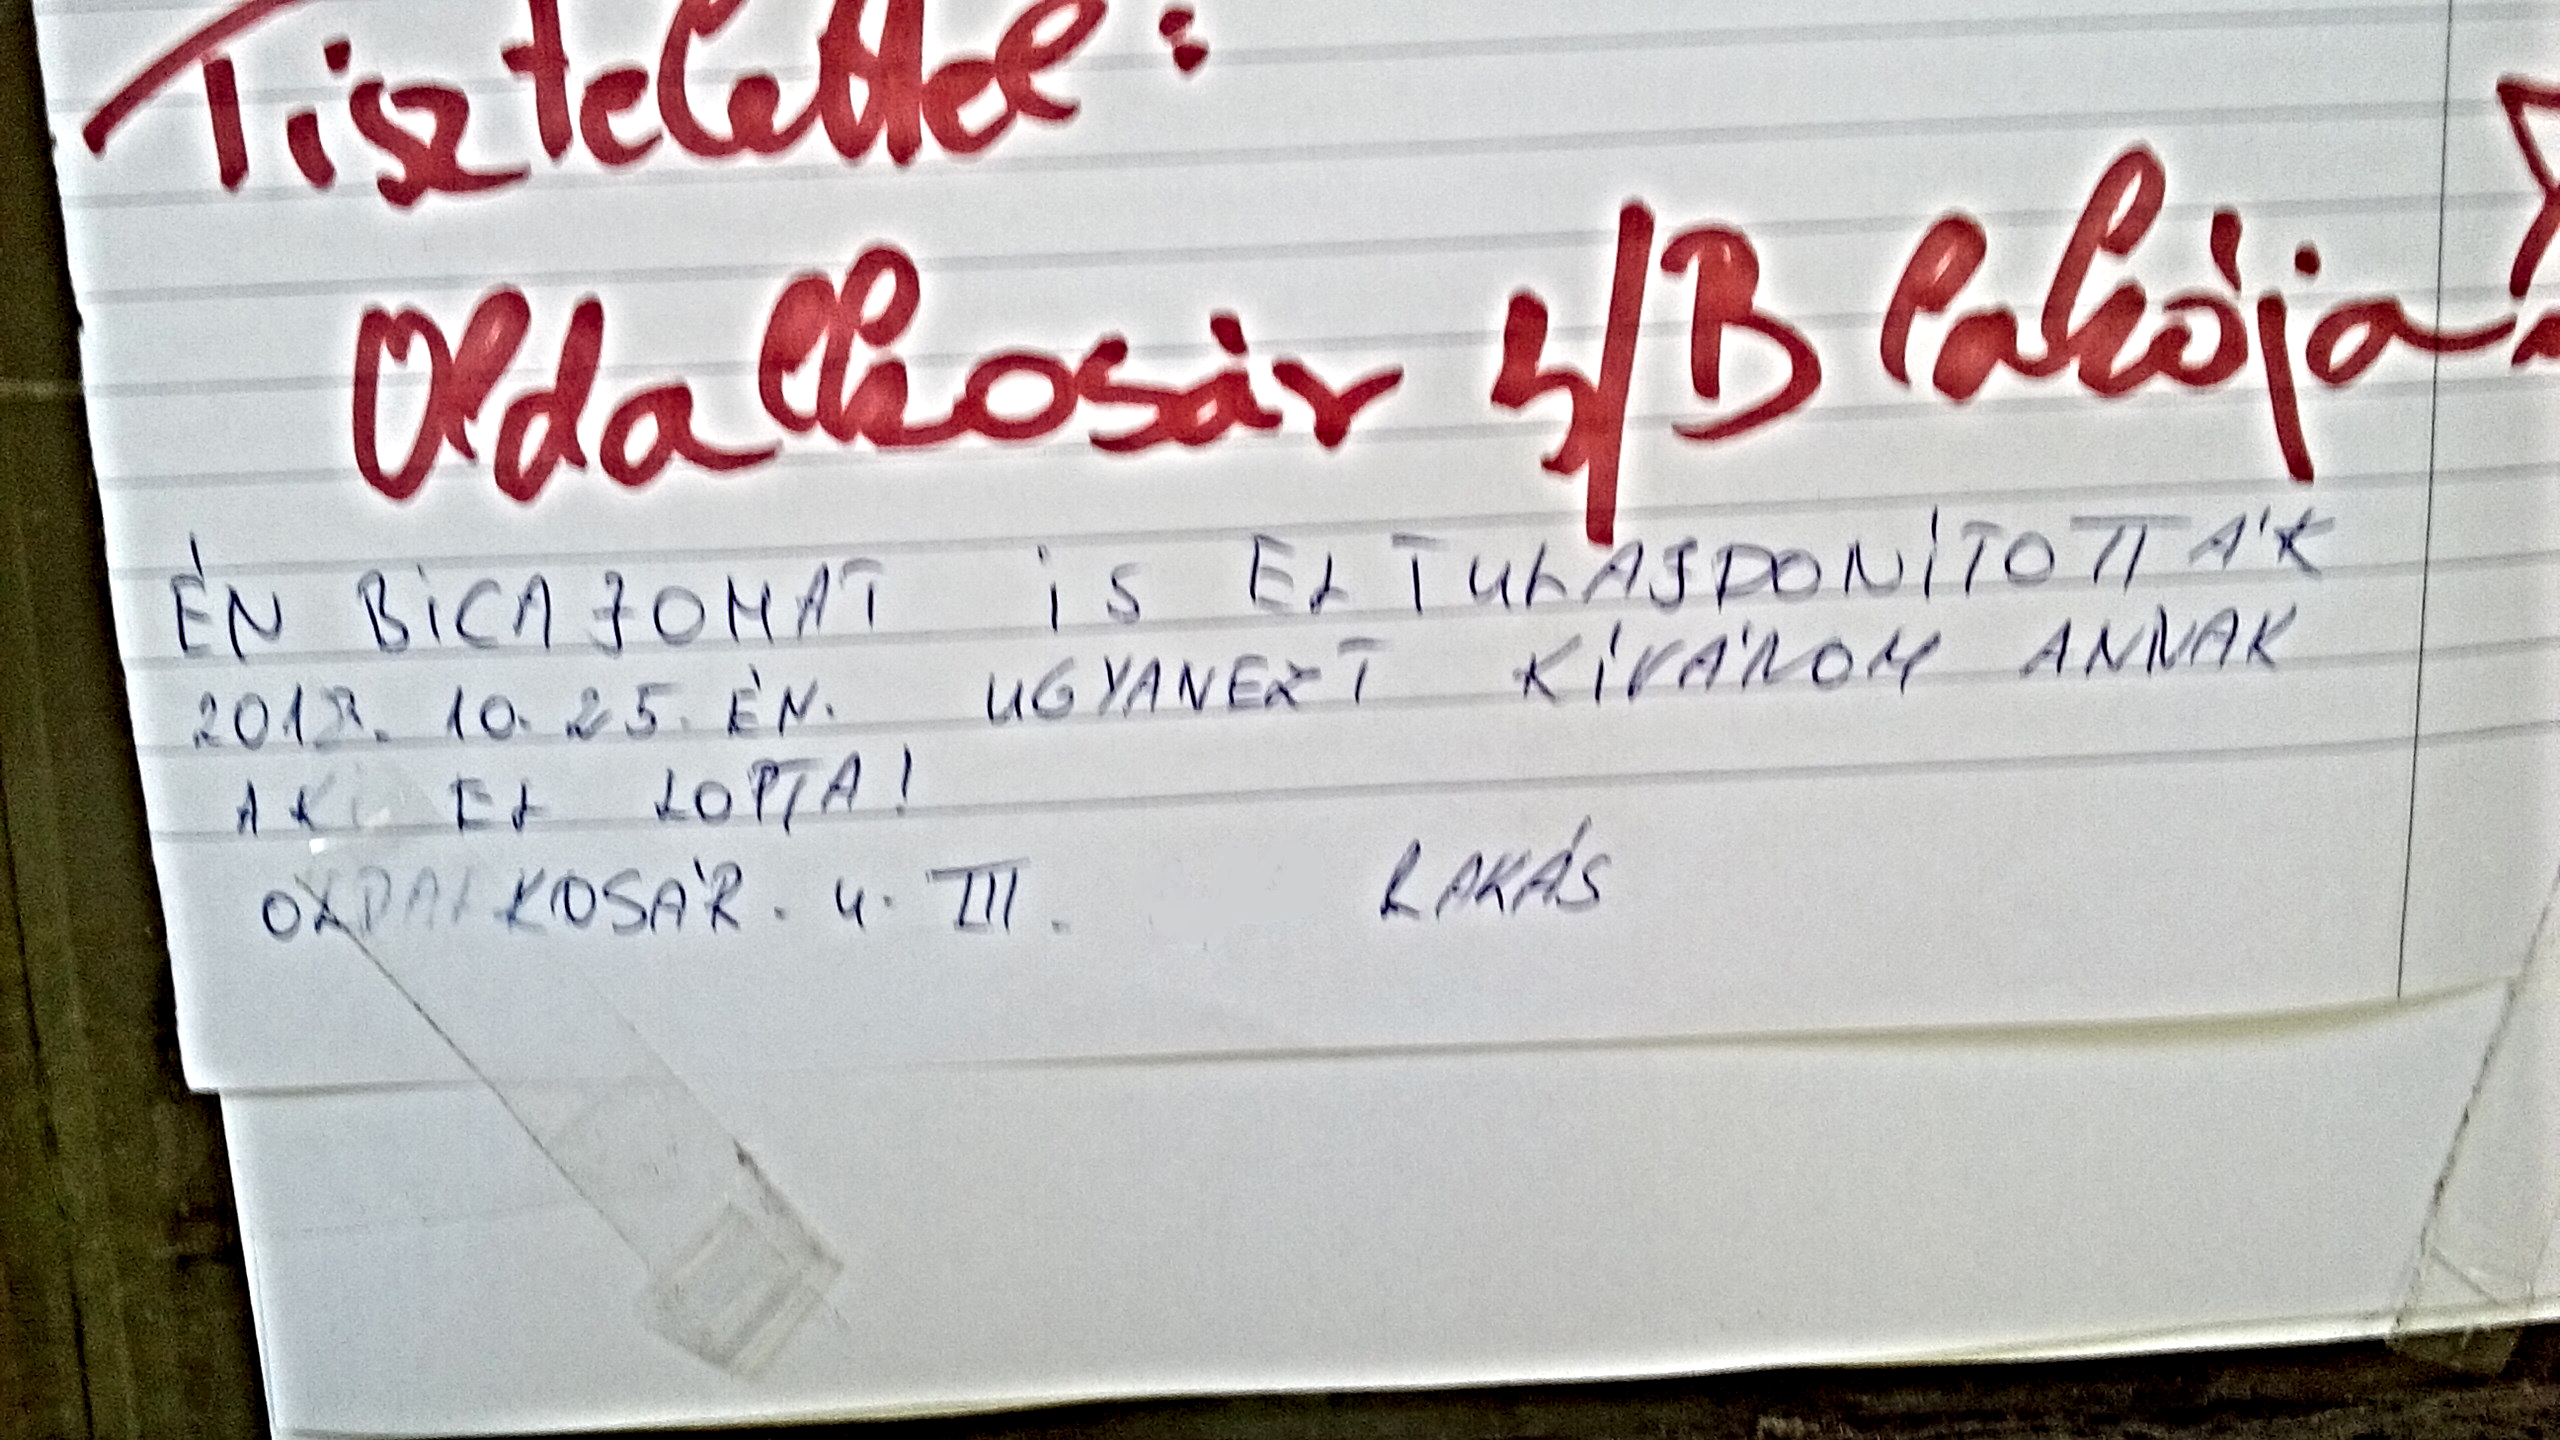 Tisztelettel:
Oldalkosár 4/B lakója
ÉN BiCAJOMAT iS ELTULAJDONÍTOTTÁK
10. 25. ÉN. UGYANEZT KÍVÁNOM ANNAK
AKi EL LOPTA!
OLDALKOSÁR. 4. III. LAKÁS